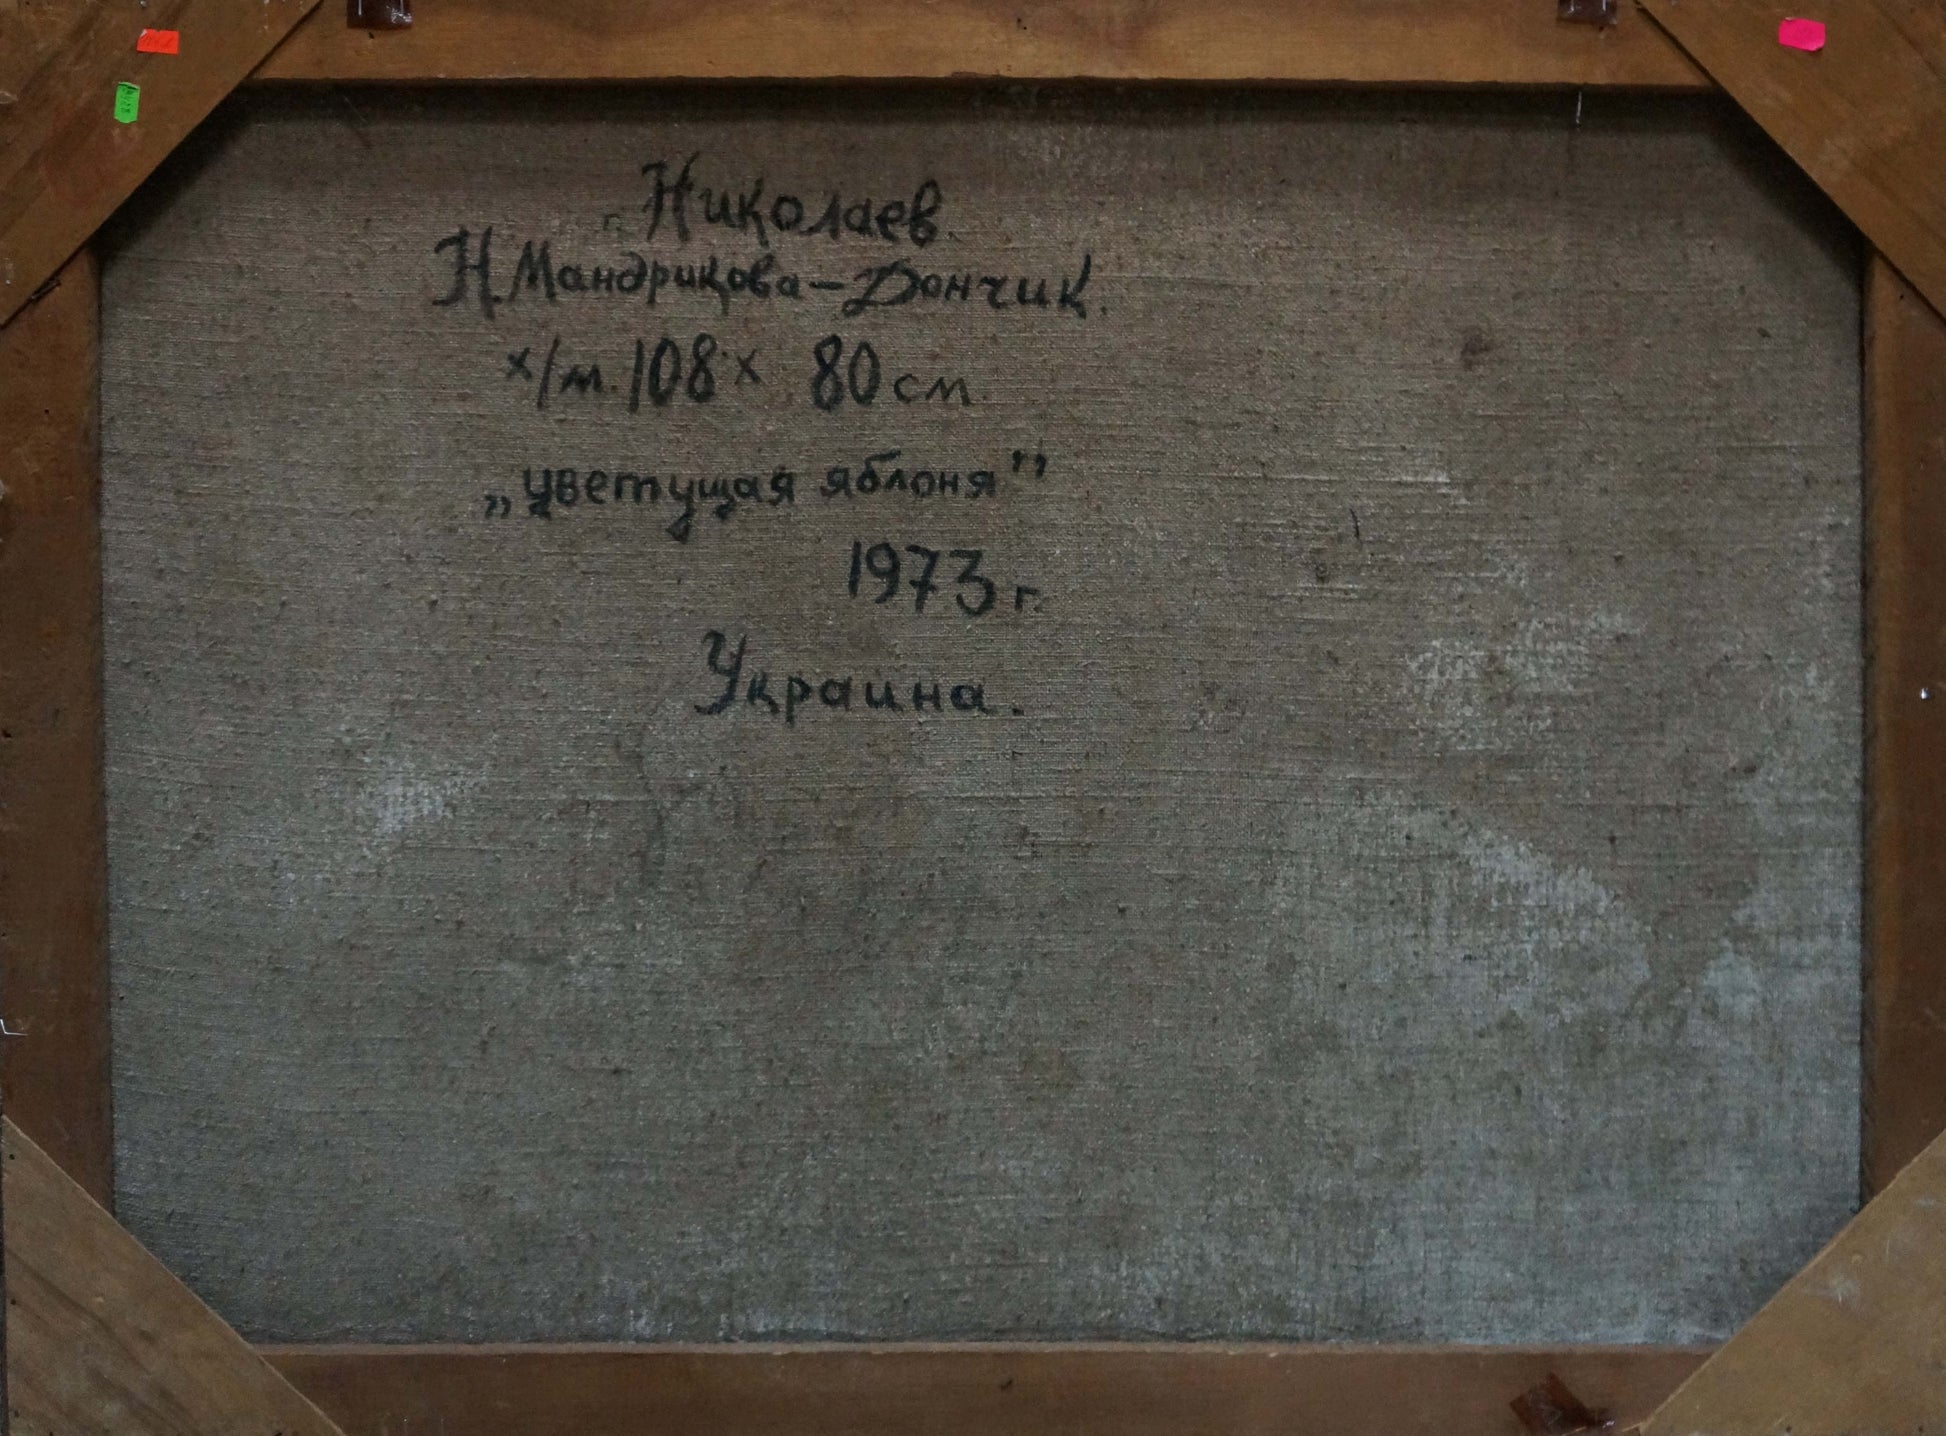 г. Николаев.
Н. Мандрикова-Дончик.
х/м. 108 х 80 см.
„цветущая яблоня”
1973 г.
Украина.